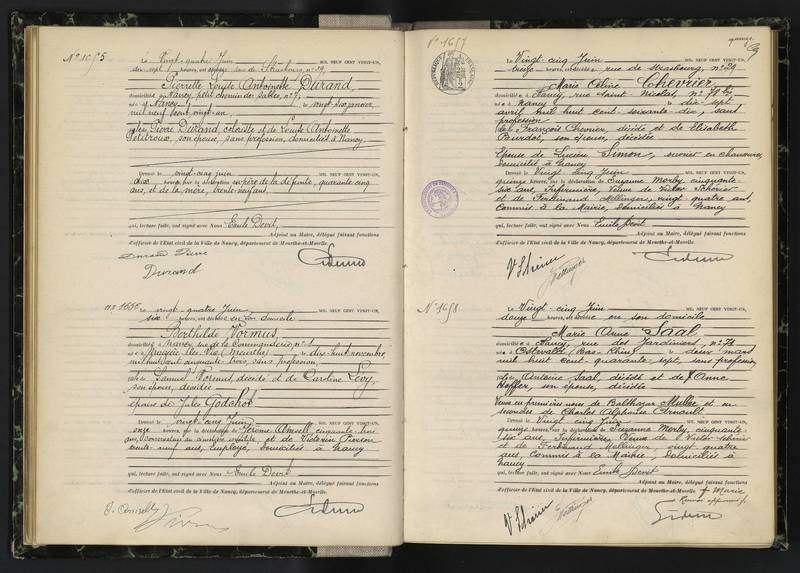 N° 1655
Le Vingt-quatre Juin MIL NEUF CENT VINGT-UN,
sept heures, est décédée rue de Strasbourg, n° 29,
Pierrette Louise Antoinette Durand,
domiciliée à Nancy, petit chemin des sables, n° 7,
née à Nancy le vingt-six janvier,
mil neuf cent vingt-un,
fille de Pierre Durand, céleste et de Louise Antoinette
son épouse, sans profession, domiciliés à Nancy.
Dressé le vingt-cinq juin MIL NEUF CENT VINGT-UN,
dix heures, sur la déclaration du père de la défunte, quarante cinq
ans, et de la mère, trente-neuf ans,
qui, lecture faite, ont signé avec Nous Emile Devit,
Adjoint au Maire, délégué faisant fonctions
d'officier de l'Etat civil de la Ville de Nancy, département de Meurthe-et-Moselle.
Durand Pierre
Durand
n° 1656
Le vingt-quatre Juin MIL NEUF CENT VINGT-UN,
six heures, est décédée en son domicile
Berthilde Vormus,
domiciliée à Nancy rue de la Commanderie n° 1
née à (Meurthe) le dix-huit novembre
mil huit cent cinquante trois, sans profession,
fille de Samuel Vormus, décédé et de Caroline Lévy,
son épouse, décédée
épouse de Jules Godchot
Dressé le vingt-cinq Juin MIL NEUF CENT VINGT-UN,
onze heures, sur la déclaration de Jérôme cinquante-trois
ans, et de Victorin
trente neuf ans, employé, domiciliés à Nancy
qui, lecture faite, ont signé avec Nous Emile Devit
Adjoint au Maire, délégué faisant fonctions
d'officier de l'Etat civil de la Ville de Nancy, département de Meurthe-et-Moselle.
N° 1657
Le Vingt-cinq Juin MIL NEUF CENT VINGT-UN,
treize heures, est décédée rue de Strasbourg, n° 29
Marie Céline Chevrier,
domiciliée à Nancy, rue Saint-Nicolas, n° 78 bis
née à Nancy le dix sept
avril mil huit cent soixante-dix, sans
profession
fille de François Chevrier, décédé et de Elisabeth
son épouse, décédée
Epouse de Lucien Simon, ouvrier en chaussures
domicilié à Nancy
Dressé le Vingt cinq Juin MIL NEUF CENT VINGT-UN,
quinze heures, sur la déclaration de Suzanne Morby, cinquante
six ans, Infirmière, Veuve de Victor
et de Ferdinand vingt quatre ans,
Commis à la Mairie, domiciliés à Nancy
qui, lecture faite, ont signé avec Nous Emile Devit
Adjoint au Maire, délégué faisant fonctions
d'officier de l'Etat civil de la Ville de Nancy, département de Meurthe-et-Moselle.
N° 1658
Le Vingt-cinq Juin MIL NEUF CENT VINGT-UN,
douze heures, est décédée en son domicile
Marie Anne Saal,
domiciliée à Nancy, rue des Jardiniers, n° 74
née à (Bas-Rhin) le deux mars
mil huit cent quarante-sept, sans profession
fille de Antoine Saal, décédé et de Anne
Hoffer, son épouse, décédée
Veuve en première noces de Balthazar Muller et en
secondes de Charles Alphonse Arnault
Dressé le Vingt-cinq Juin MIL NEUF CENT VINGT-UN,
quinze heures, sur la déclaration de Suzanne Morby, cinquante
six ans, Infirmière, Veuve de Victor
et de Ferdinand vingt quatre
ans, Commis à la Mairie, domiciliés à
Nancy
qui, lecture faite, ont signé avec Nous Emile Devit
Adjoint au Maire, délégué faisant fonctions
d'officier de l'Etat civil de la Ville de Nancy, département de Meurthe-et-Moselle.